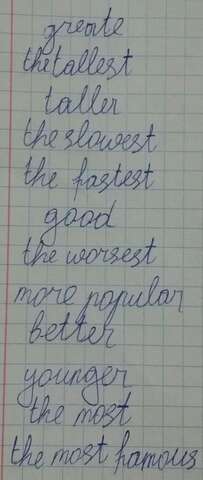 greate
the tallest
taller
the slowest
the fastest
good
the worsest
more popular
better
younger
the most
the most famous